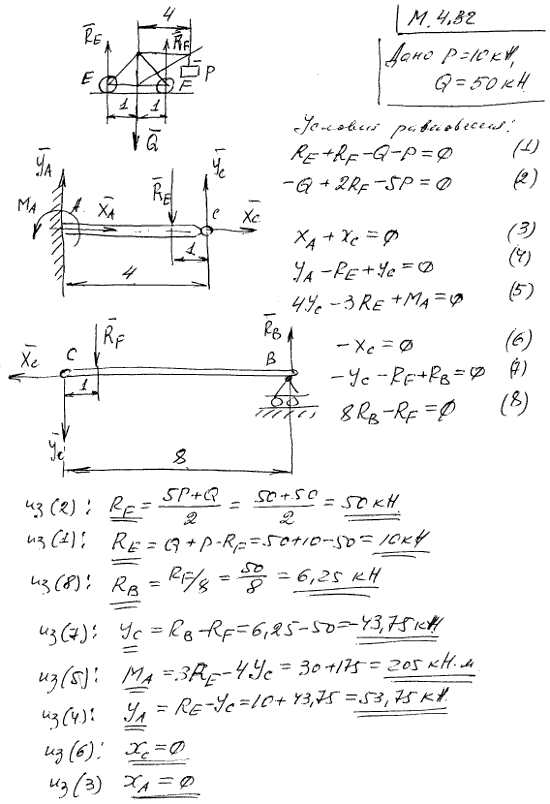 М. 4.32
Дано P=10кН,
Q=50кН
4
R̄E
R̄F
E
F
P
1
1
Q̄
Условия равновесия:
RE+RF-Q-P=0 (1)
-Q+2RF-5P=0 (2)
ȲA
MA
A
X̄A
R̄E
Ȳc
C
X̄c
1
4
XA+Xc=0 (3)
YA-RE+Yc=0 (4)
4Yc-3RE+MA=0 (5)
X̄c
C
R̄F
1
Ȳc
R̄B
B
8
-Xc=0 (6)
-Yc-RF+RB=0 (7)
8RB-RF=0 (8)
из(2): RF=(5P+Q)/2=(50+50)/2=50кН
из(1): RE=Q+P-RF=50+10-50=10кН
из(8): RB=RF/8=50/8=6,25кН
из(7): Yc=RB-RF=6,25-50=-43,75кН
из(5): MA=3RE-4Yc=30+175=205кН·м
из(4): YA=RE-Yc=10+43,75=53,75кН
из(6): Xc=0
из(3) XA=0